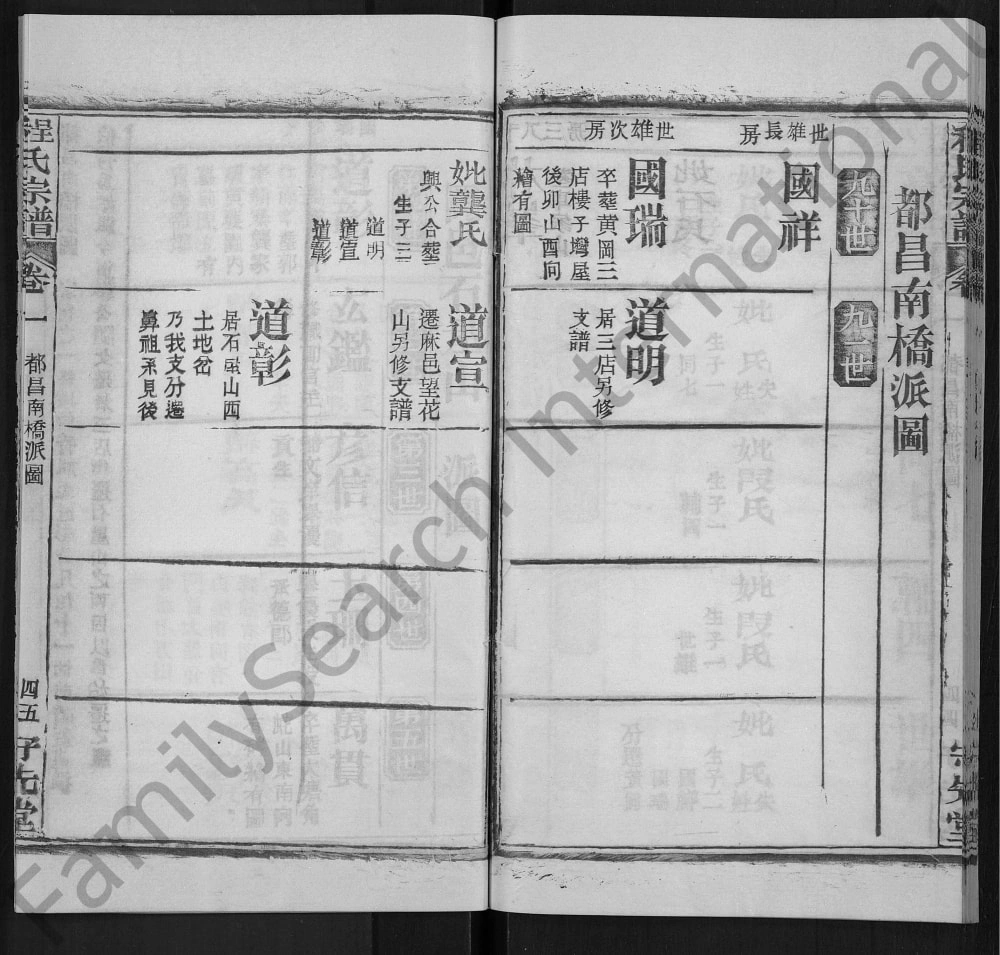 都昌南橋派圖
九十世
九一世
世雄長房
國祥
世雄次房
國瑞
卒葬黄岡三
店樓子塆屋
後卯山酉向
繪有圖
道明
居三店另修
支譜
妣龔氏
興公合塟
生子三
道明
道宣
道彰
道宣
遷麻邑望花
山另修支譜
道彰
居石頭山西
土地岔
乃我支分遷
鼻祖系見後
程氏宗譜
卷一
都昌南橋派圖
四五
FamilySearch International